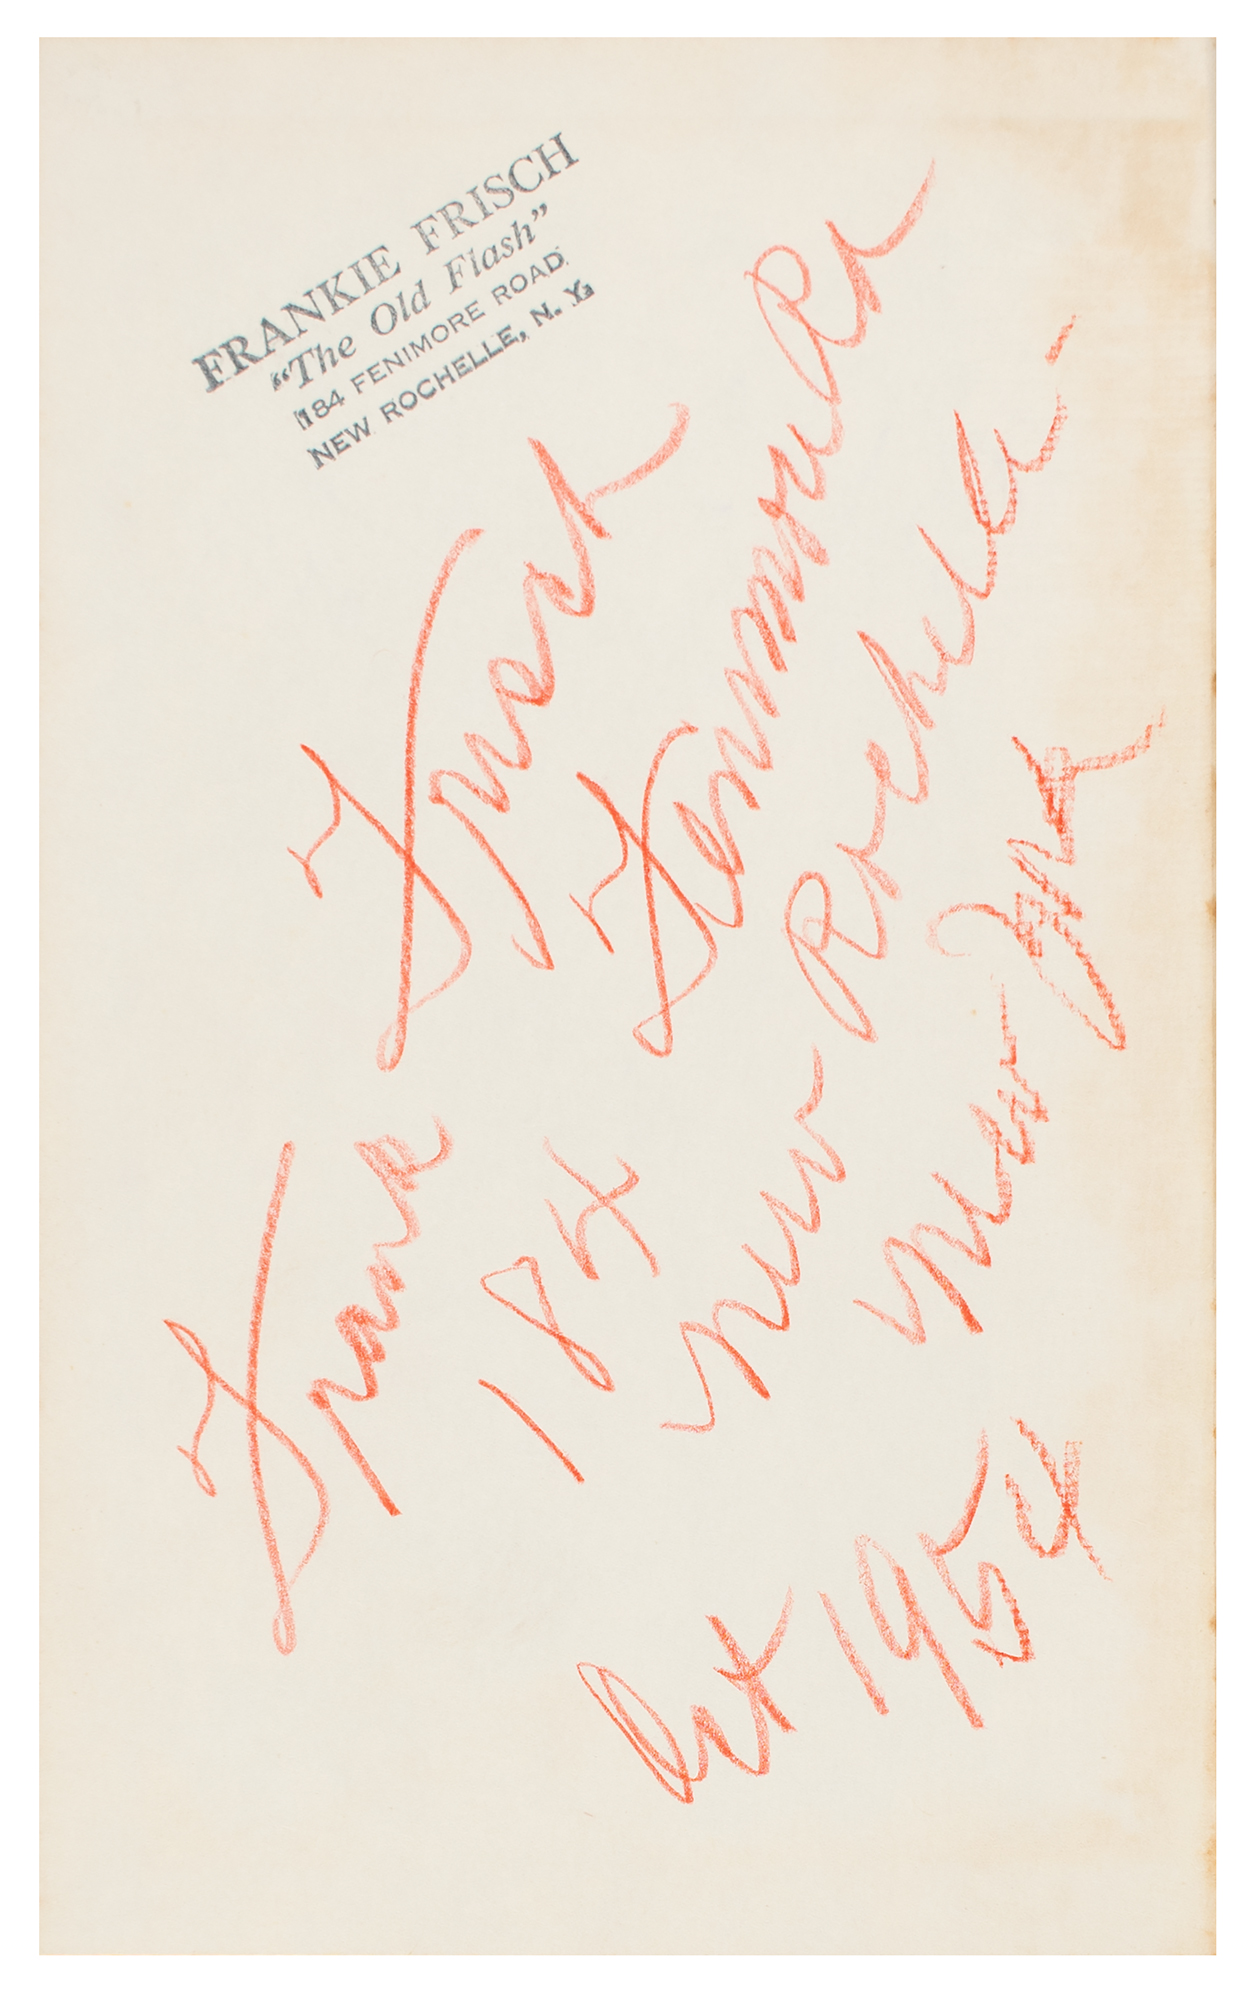 FRANKIE FRISCH
“The Old Flash”
184 FENIMORE ROAD
NEW ROCHELLE, N. Y.
Frank Frisch
184 Fenimore Rd
New Rochelle -
New York
Oct 1954